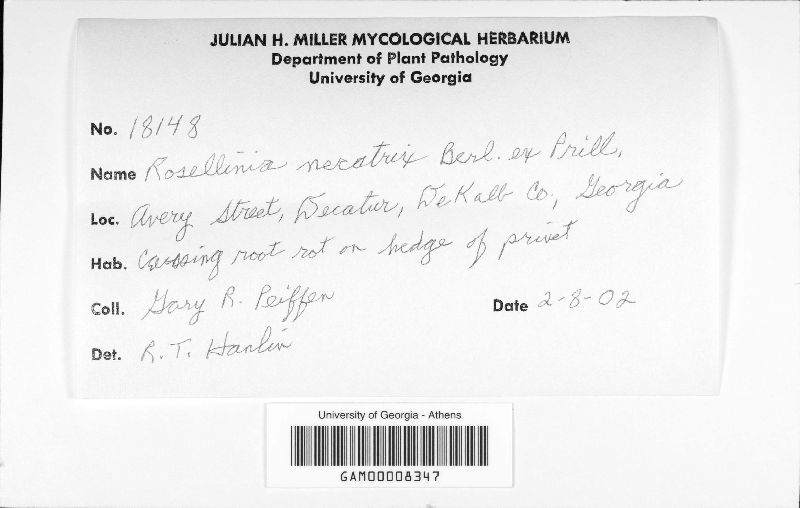 JULIAN H. MILLER MYCOLOGICAL HERBARIUM
Department of Plant Pathology
University of Georgia
No. 18148
Name Rosellinia necatrix Berl. ex Prill.
Loc. Avery Street, Decatur, DeKalb Co., Georgia
Hab. Causing root rot on hedge of privet
Coll. Gary R. Peiffen Date 2-8-02
Det. R. T. Hanlin
University of Georgia - Athens
GAM00008347